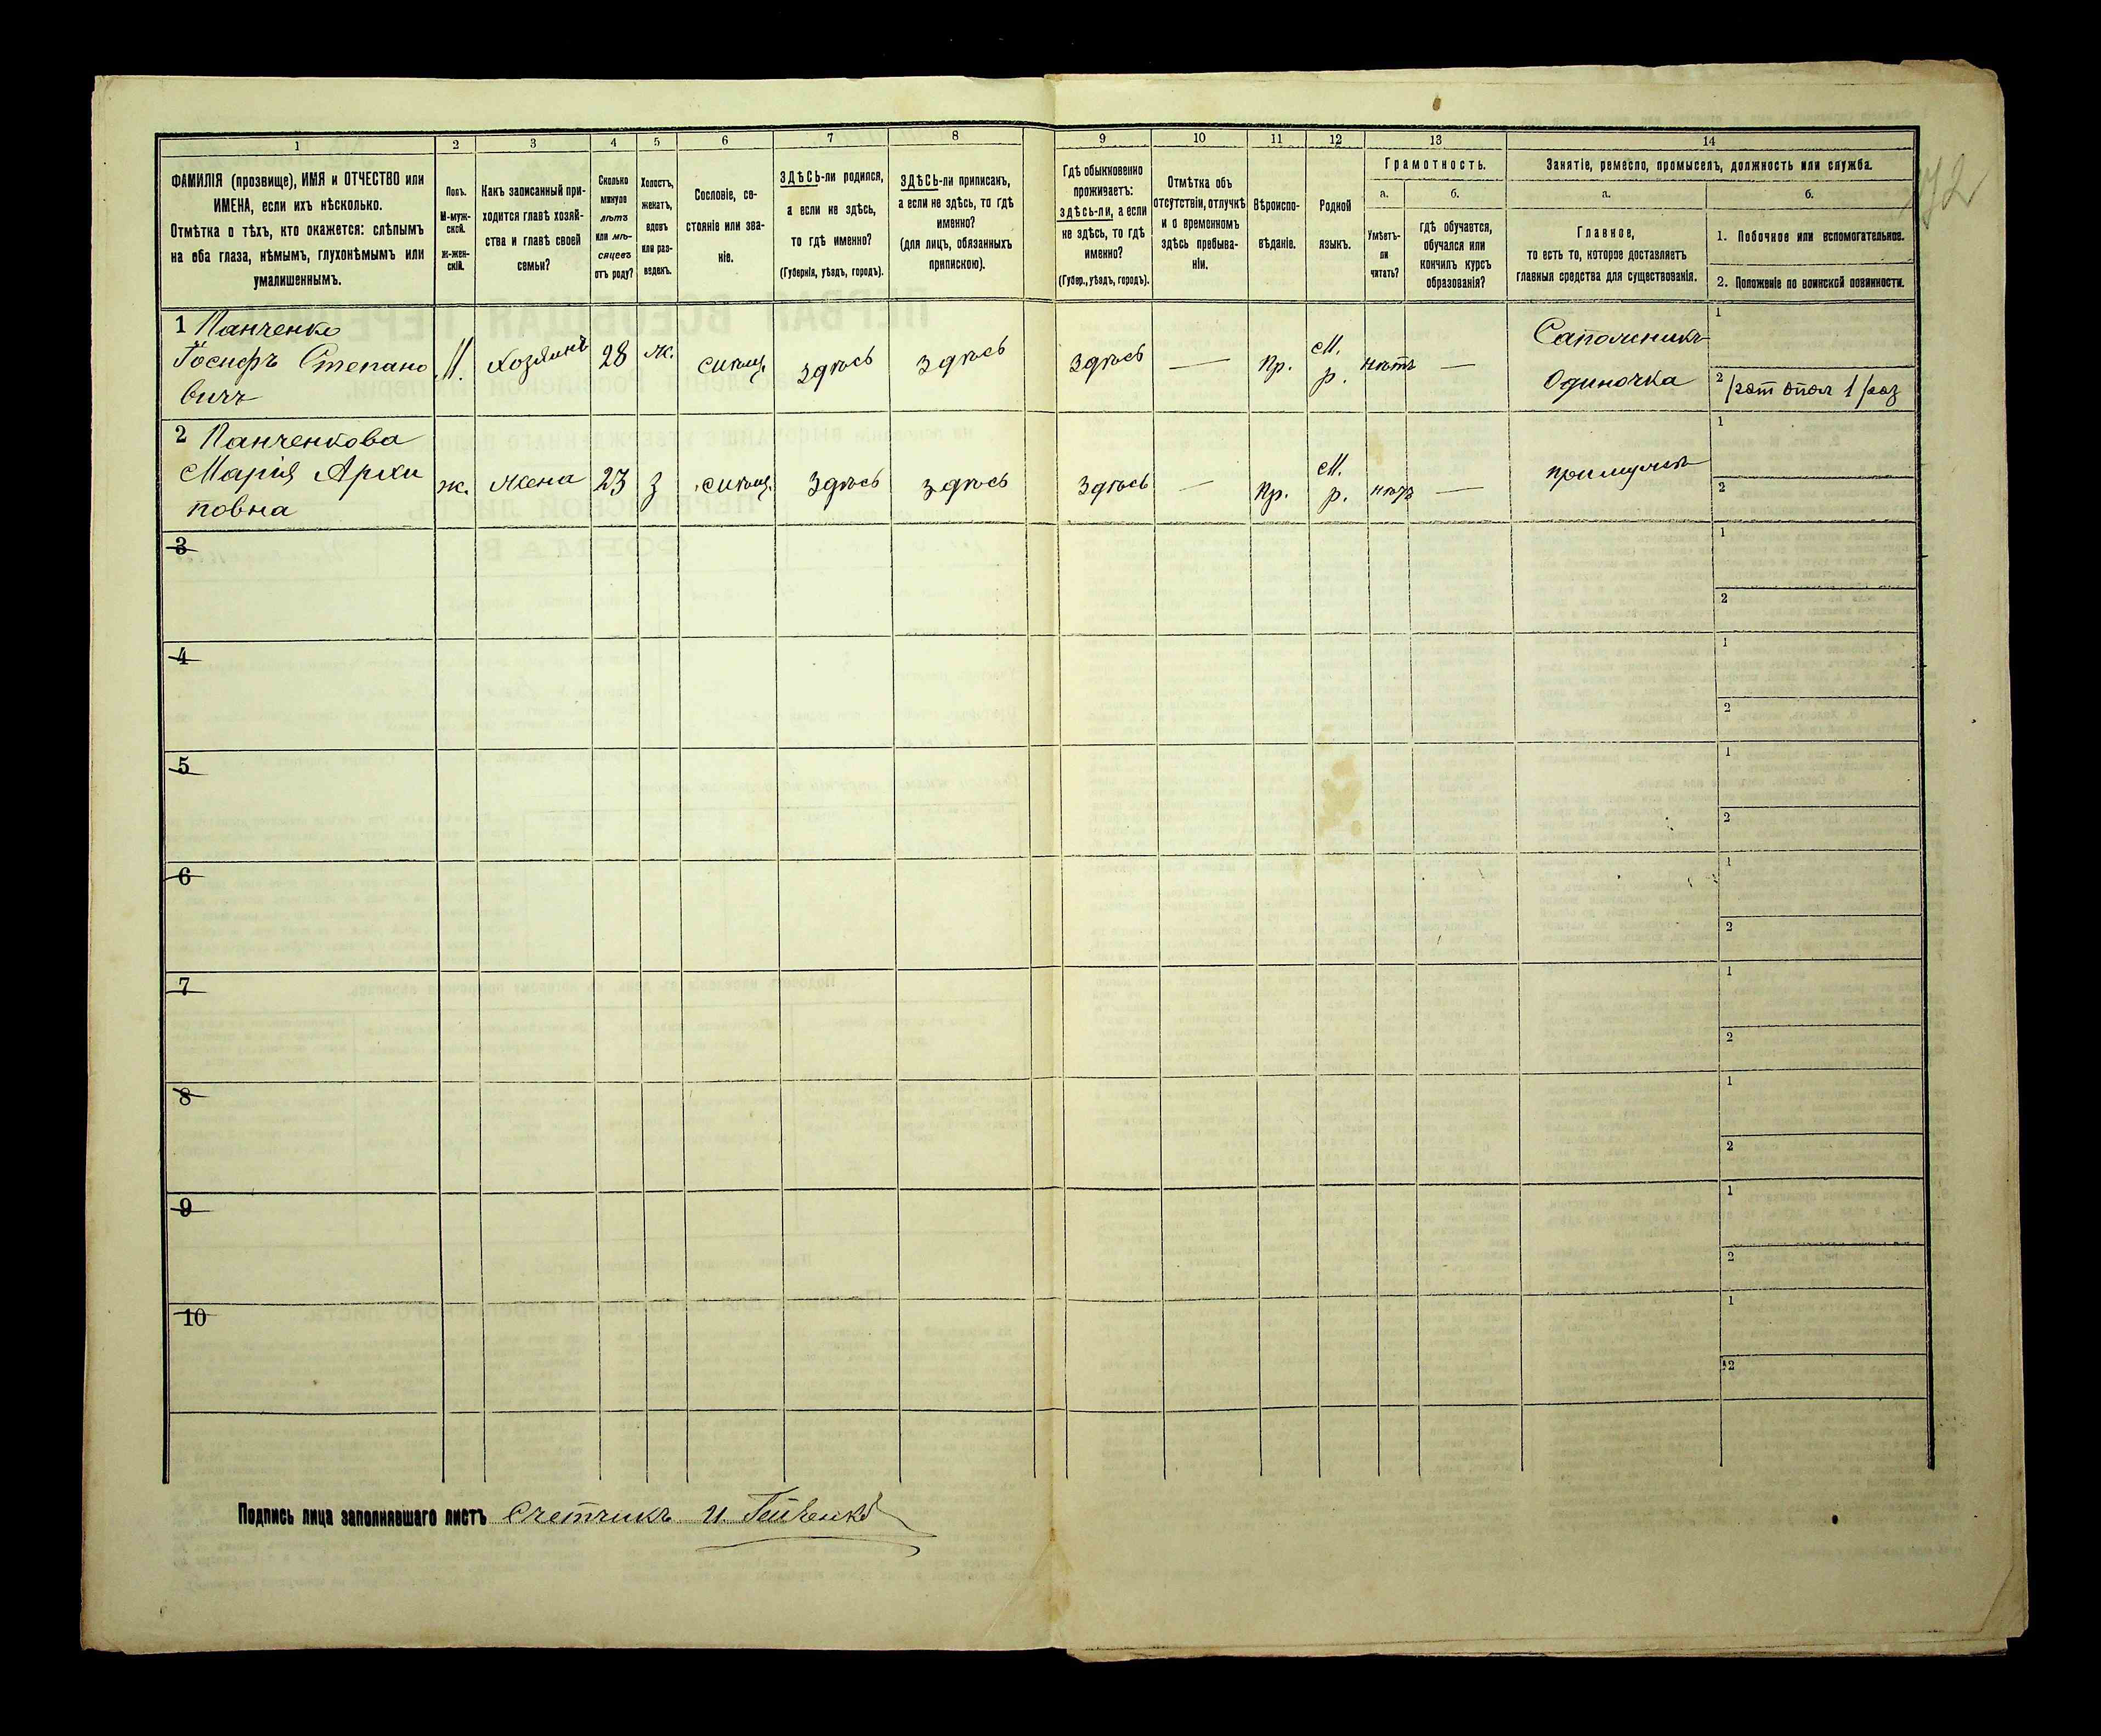 1 2 3 4 5 6 7 8 9 10 11 12 13 14
ФАМИЛІЯ (прозвище), ИМЯ и ОТЧЕСТВО или
ИМЕНА, если ихъ нѣсколько.
Отмѣтка о тѣхъ, кто окажется: слѣпымъ
на оба глаза, нѣмымъ, глухонѣмымъ или
умалишеннымъ.
Полъ.
М-муж-
ской.
ж-жен-
скій.
Какъ записанный при-
ходится главѣ хозяй-
ства и главѣ своей
семьи?
Сколько
минуло
лѣтъ
или мѣ-
сяцевъ
отъ роду?
Холостъ,
женатъ,
вдовъ
или раз-
веденъ.
Сословіе, со-
стояніе или зва-
ніе.
ЗДѢСЬ-ли родился,
а если не здѣсь,
то гдѣ именно?
(Губернія, уѣздъ, городъ).
ЗДѢСЬ-ли приписанъ,
а если не здѣсь, то гдѣ
именно?
(для лицъ, обязанныхъ
припискою).
Гдѣ обыкновенно
проживаетъ:
здѣсь-ли, а если
не здѣсь, то гдѣ
именно?
(Губер., уѣздъ, городъ).
Отмѣтка объ
отсутствіи, отлучкѣ
и о временномъ
здѣсь пребыва-
ніи.
Вѣроиспо-
вѣданіе.
Родной
языкъ.
Грамотность.
а. б.
Умѣетъ-
ли
читать?
гдѣ обучается,
обучался или
кончилъ курсъ
образованія?
Занятіе, ремесло, промыселъ, должность или служба.
а. б.
Главное,
то есть то, которое доставляетъ
главныя средства для существованія.
1. Побочное или вспомогательное.
2. Положеніе по воинской повинности.
192
1 Панченко
Іосифъ Степано
вичъ
М. Хозяинъ 28 ж. здѣсь здѣсь здѣсь — пр. М.
р. нѣтъ —
Сапожникъ
Одиночка
1
2 рат опол 1 раз
2 Панченкова
Марія Архи
повна
ж. Жена 23 з здѣсь здѣсь здѣсь — пр. М.
р. нѣтъ —
1
2
3
1
2
4
1
2
5
1
2
6
1
2
7
1
2
8
1
2
9
1
2
10
1
2
Подпись лица заполнявшаго листъ Счетчикъ И.